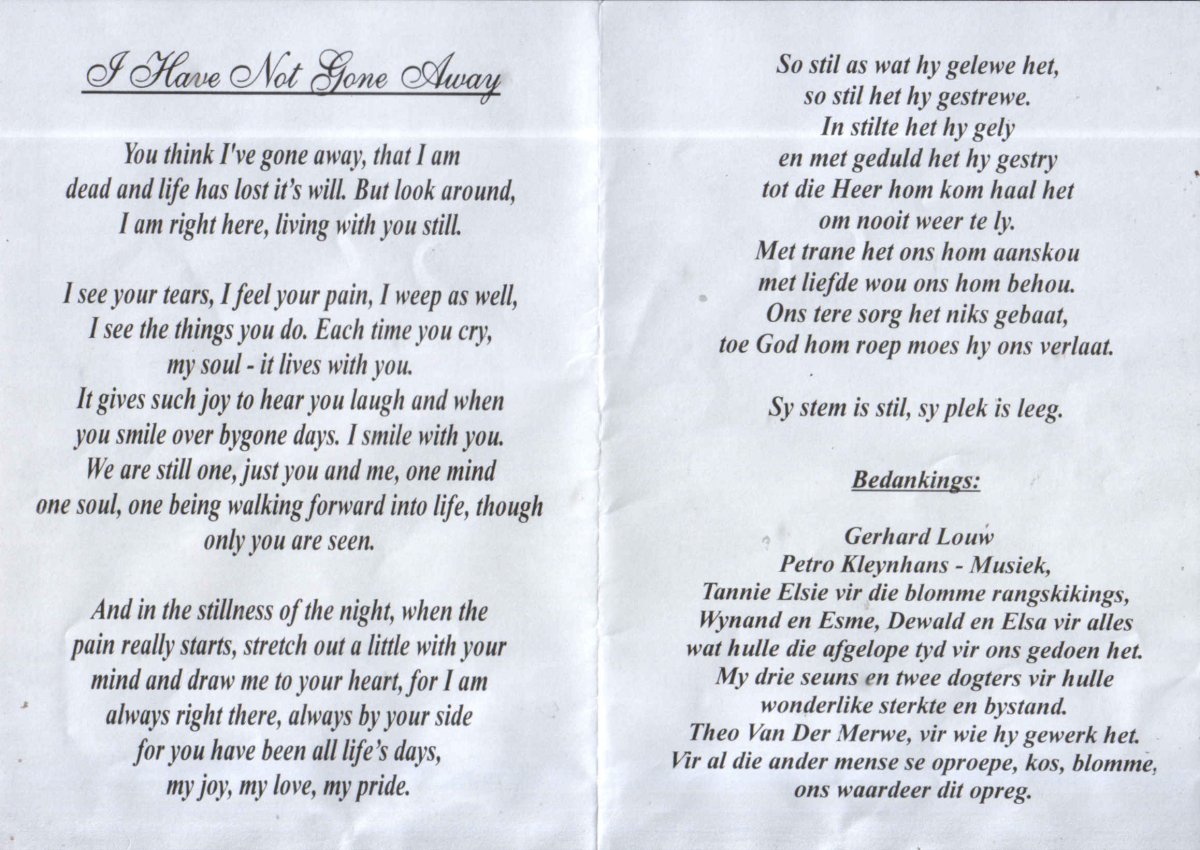 I Have Not Gone Away
You think I've gone away, that I am
dead and life has lost it's will. But look around,
I am right here, living with you still.
I see your tears, I feel your pain, I weep as well,
I see the things you do. Each time you cry,
my soul - it lives with you.
It gives such joy to hear you laugh and when
you smile over bygone days. I smile with you.
We are still one, just you and me, one mind
one soul, one being walking forward into life, though
only you are seen.
And in the stillness of the night, when the
pain really starts, stretch out a little with your
mind and draw me to your heart, for I am
always right there, always by your side
for you have been all life's days,
my joy, my love, my pride.
So stil as wat hy gelewe het,
so stil het hy gestrewe.
In stilte het hy gely
en met geduld het hy gestry
tot die Heer hom kom haal het
om nooit weer te ly.
Met trane het ons hom aanskou
met liefde wou ons hom behou.
Ons tere sorg het niks gebaat,
toe God hom roep moes hy ons verlaat.
Sy stem is stil, sy plek is leeg.
Bedankings:
Gerhard Louw
Petro Kleynhans - Musiek,
Tannie Elsie vir die blomme rangskikings,
Wynand en Esme, Dewald en Elsa vir alles
wat hulle die afgelope tyd vir ons gedoen het.
My drie seuns en twee dogters vir hulle
wonderlike sterkte en bystand.
Theo Van Der Merwe, vir wie hy gewerk het.
Vir al die ander mense se oproepe, kos, blomme,
ons waardeer dit opreg.